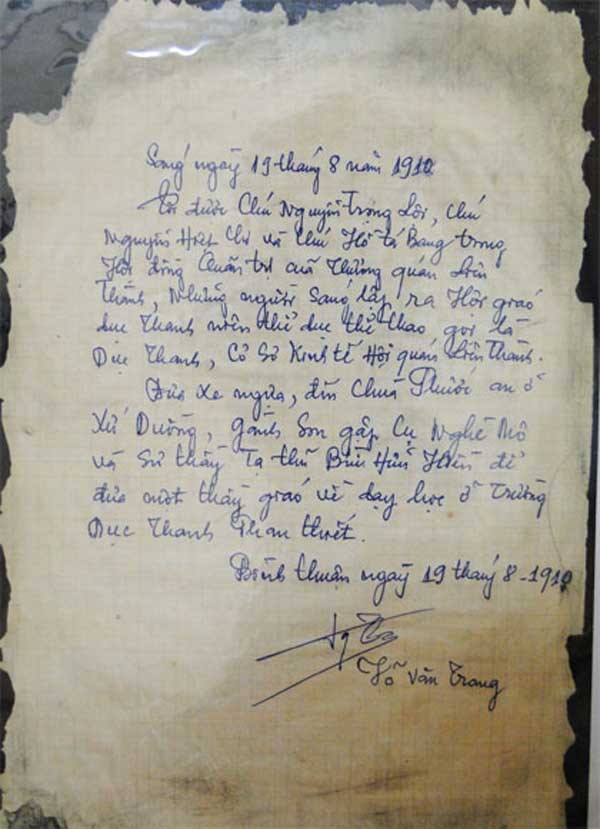 Sáng ngày 19 tháng 8 năm 1910
Tôi được Chú Nguyễn Trọng Lôi, Chú
Nguyễn Hiệt Chi và Chú Hồ Tá Bang trong
Hội đồng Quản trị của Thương quán Liên
Thành, Những người Sáng lập ra Hội giáo
dục Thanh niên thể dục thể thao gọi là
Dục Thanh, Cơ Sở Kinh tế Hội quán Liên Thành.
Đưa Xe ngựa, đến Chùa Phước an ở
Xứ Dường, gành Son gặp Cụ Nghè Mô
và Sư thầy Tạ thủ Bùi Hữu Hiền để
đưa một thầy giáo về dạy học ở Trường
Dục Thanh Phan thiết.
Bình thuận ngày 19 tháng 8-1910
Văn Trang